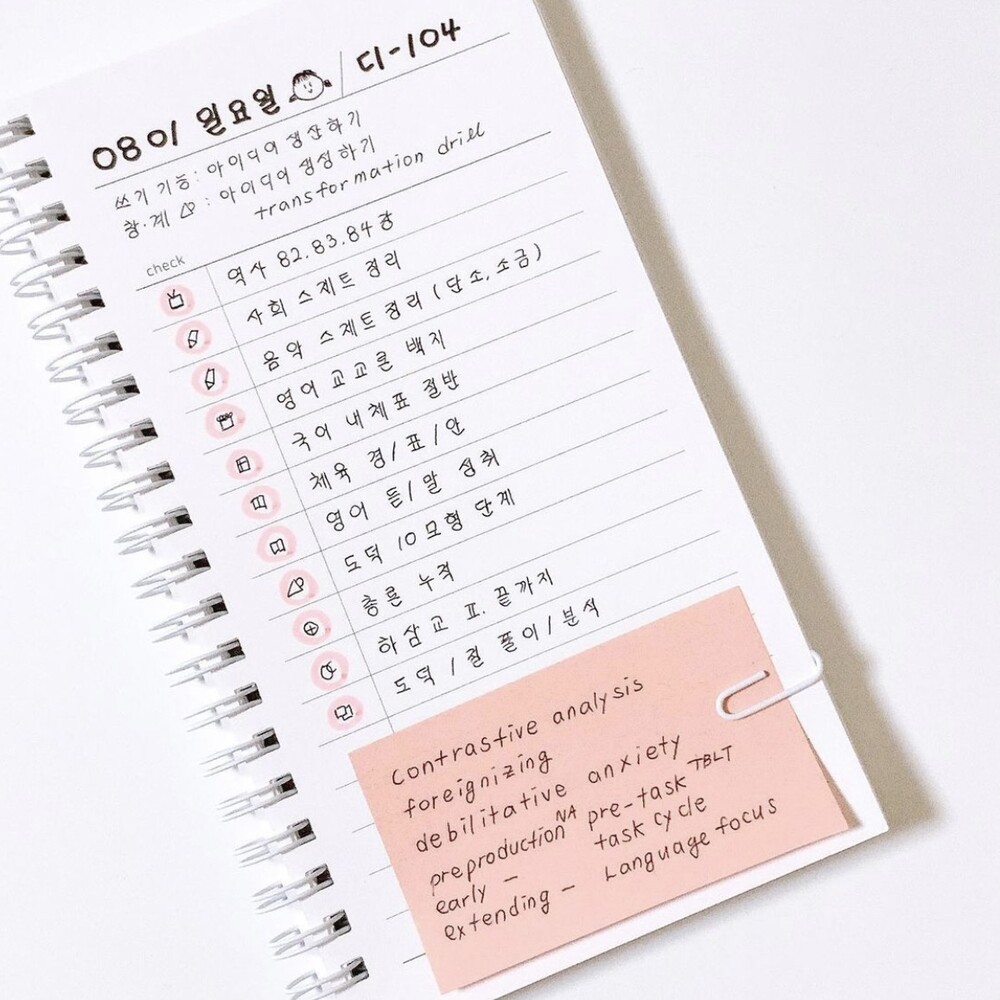 0801 일요일 / D-104
쓰기 기능: 아이디어 생산하기
창·계 : 아이디어 생성하기
transformation drill
check
역사 82.83.84강
사회 스제트 정리
음악 스제트 정리 (단소, 소금)
영어 교교론 백지
국어 내체표 절반
체육 경/표/안
영어 듣/말 성취
도덕 10모형 단계
총론 누적
하삼교 표. 끝까지
도덕 1절 풀이/분석
contrastive analysis
foreignizing
debilitative anxiety
preproduction NA pre-task TBLT
early - task cycle
extending - Language focus